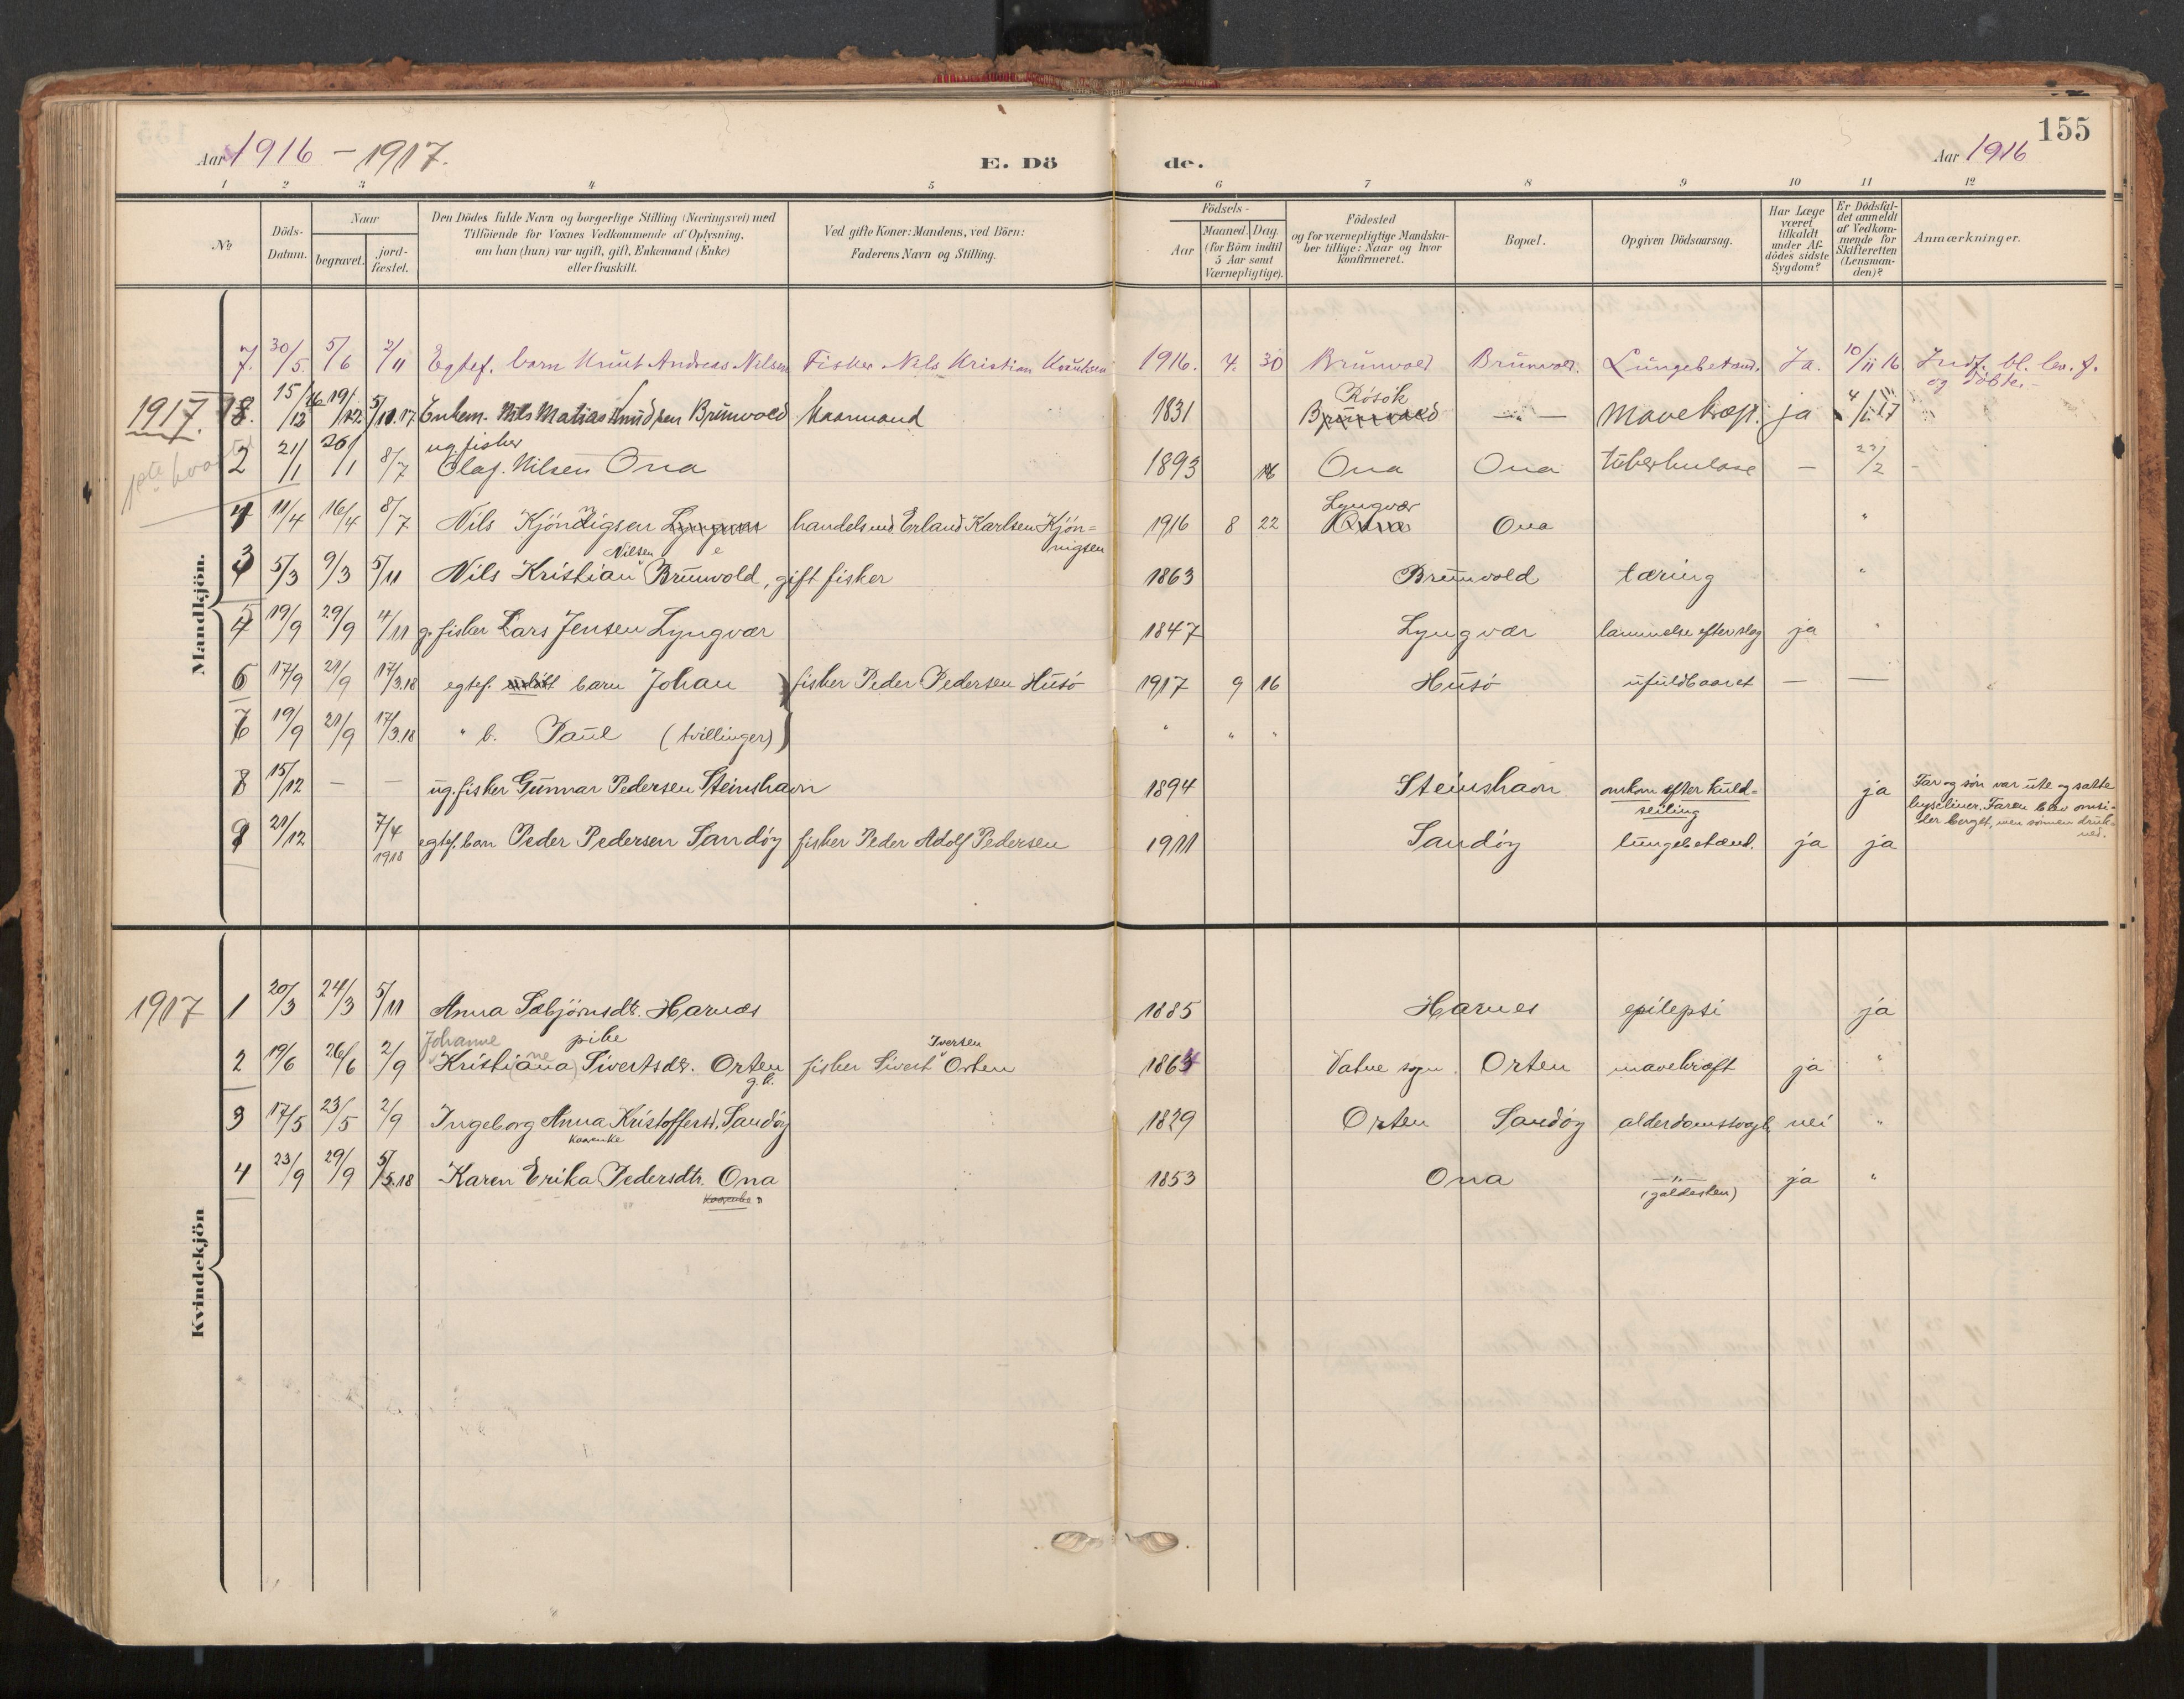 155
Aar 1916 - 1917.
E. Dö de.
Aar 1916
1 2 3 4 5 6 7 8 9 10 11 12
No
Döds-Datum.
Naar
begravet.
jord-fæstet.
Den Dödes fulde Navn og borgerlige Stilling (Næringsvei) med
Tilföiende for Voxnes Vedkommende af Oplysning,
om han (hun) var ugift, gift, Enkemand (Enke)
eller fraskilt.
Ved gifte Koner: Mandens, ved Börn:
Faderens Navn og Stilling.
Födsels-
Aar
Maaned. Dag.
(for Börn indtil
5 Aar samt
Værnepligtige).
Födested
og for værnepligtige Mandska-
ber tillige: Naar og hvor
konfirmeret.
Bopæl.
Opgiven Dödsaarsag.
Har Læge
været
tilkaldt
under Af-
dödes sidste
Sygdom?
Er Dödsfal-
det anmeldt
af Vedkom-
mende for
Skifteretten
(Lensman-
den)?
Anmærkninger.
Mandkjön.
7. 30/5. 5/6 2/11 Egtef. barn Knut Andreas Nilsen Fisker Nils Kristian Knutsen 1916. 4. 30 Brunvold Brunvold. Lungebetænd. Ja. 10/11 16 Indf. bl. lev. f.
og döbte.
1917. 8. 15/12 16 19/12 5/10.17 Enkem. Nils Matias Knudsen Brunvold Kaarmand 1831 Rösok Brunvold —„— Mavekræft. ja 4/1 17
ug. fisker
2 21/1 26/1 8/7 Olaf Nilsen Ona 1893 Ona Ona tuberkulose — 2
4 11/4 16/4 8/7 Nils Kjönnigsen Lyngvær handelsmd Erland Karlsen Kjön-
nigsen 1916 8 22 Lyngvær Ona Ona "
Nilsen
3 5/3 9/3 5/11 Nils Kristian Brunvold, gift fisker 1863 Brunvold tæring "
5 19/9 29/9 4/11 g. fisker Lars Jensen Lyngvær 1847 Lyngvær lammelse efter slag ja "
6 17/9 21/9 17/3.18 egtef. barn Johan fisker Peder Pedersen Husö 1917 9 16 Husö ufuldbaaret — —
7 19/9 21/9 17/3.18 " b. Paul (tvillinger) " " "
8 15/12 — — ug. fisker Gunnar Pedersen Steinshavn 1894 Steinshavn omkom efter kuld-
seiling ja Far og sön var ute og satte
lyseliner. Faren blev omsi-
der berget, men sönnen druk-
ned.
9 21/12 7/4 1918 egtef. barn Peder Pedersen Sandöy fisker Peder Adolf Pedersen 1911 Sandöy lungebetænd. ja ja
Kvindekjön
1917 1 20/3 24/3 5/11 Anna Sæbjörnsdt. Harnæs 1885 Harnes epilepsi ja
Johanne pike
2 19/6 26/6 2/9 Kristi(ana)ne Sivertsdt. Orten g.k. fisker Sivert Iversen Orten 1864 Vatne sogn. Orten mavekræft ja "
3 17/5 23/5 2/9 Ingeborg Anna Kristoffersd. Sandöy 1829 Orten Sandöy alderdomssvagh. nei "
kaarenke
4 23/9 29/9 5/5.18 Karen Erika Pedersdtr. Ona 1853 Ona —„— ja "
kaarenke
(galdesten)